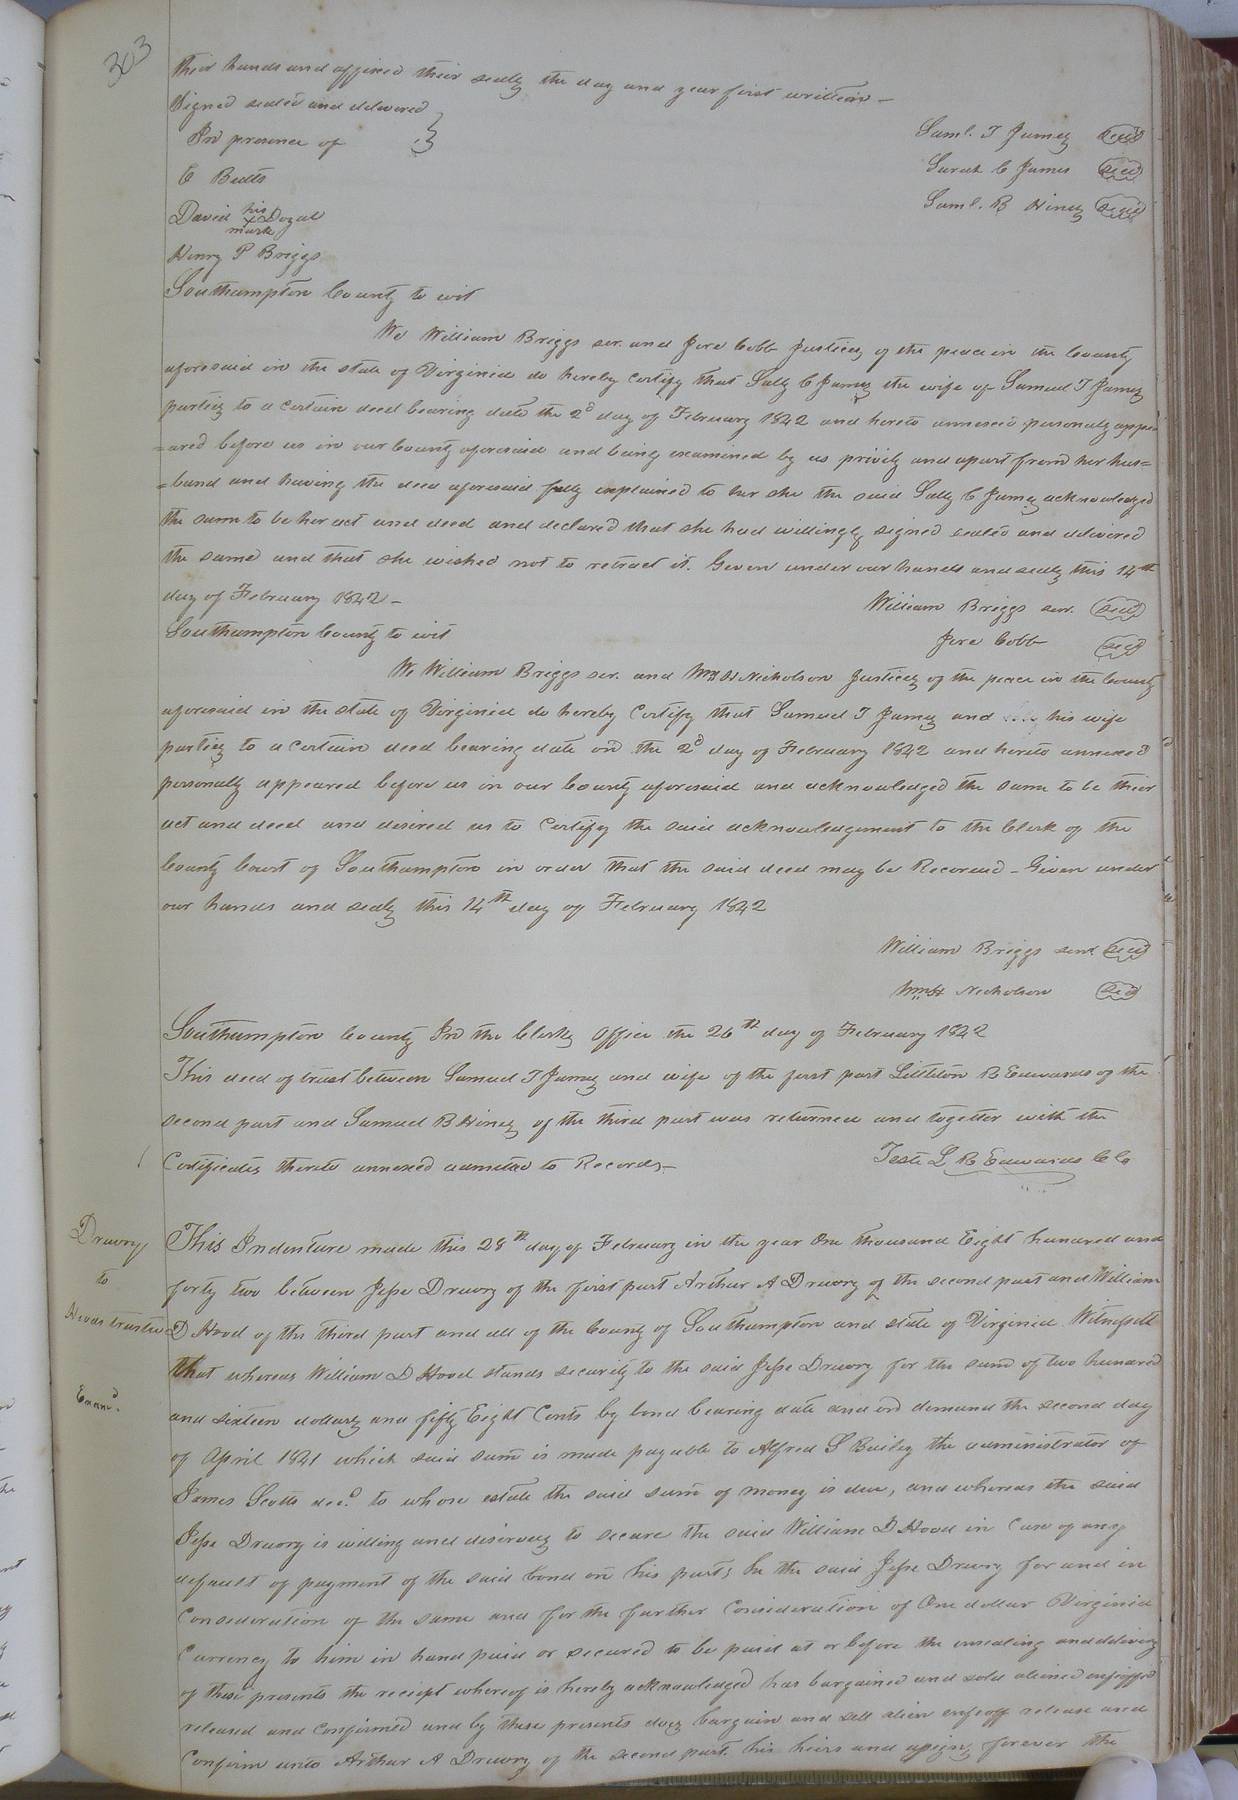 303
their hands and affixed their seals the day and year first written —
Signed sealed and delivered
In presence of
E Butts
David his Dozal
X
mark
Henry P Briggs
Saml. T James Seal
Sarah C James Seal
Saml. B Hines Seal
Southampton County to wit
We William Briggs sen. and Jere Cobb Justices of the peace in the County
aforesaid in the state of Virginia do hereby Certify that Sally C James the wife of Samuel T James
parties to a certain deed bearing date the 2d day of February 1842 and hereto annexed personaly appe
=ared before us in our County aforesaid and being examined by us privily and apart from her hus=
=band and having the deed aforesaid fully explained to her she the said Sally C James acknowledged
the same to be her act and deed and declared that she had willingly signed sealed and delivered
the same and that she wished not to retract it. Given under our hands and seals this 14th
day of February 1842 —
William Briggs sen. Seal
Jere Cobb Seal
Southampton County to wit
We William Briggs sen. and Wm H Nicholson Justices of the peace in the County
aforesaid in the state of Virginia do hereby Certify that Samuel T James and his wife
parties to a certain deed bearing date on the 2d day of February 1842 and hereto annexed
personally appeared before us in our County aforesaid and acknowledged the same to be their
act and deed and desired us to Certify the said acknowledgement to the Clerk of the
County Court of Southampton in order that the said deed may be Recorded – Given under
our hands and seals this 14th day of February 1842
William Briggs senr. Seal
Wm H Nicholson Seal
Southampton County In the Clerks Office the 26th day of February 1842
This deed of trust between Samuel T James and wife of the first part Littleton R Edwards of the
second part and Samuel B Hines of the third part was returned and together with the
Certificates thereto annexed admitted to Records —
Teste L R Edwards CC
Drewry
to
trustee
Examd.
This Indenture made this 28th day of February in the year One thousand Eight hundred and
forty two between Jesse Drewry of the first part Arthur A Drewry of the second part and William
D Hood of the third part and all of the County of Southampton and state of Virginia Witnesseth
that whereas William D Hood stands security to the said Jesse Drewry for the sum of two hundred
and sixteen dollars and fifty Eight Cents by bond bearing date and on demand the second day
of April 1841 which said sum is made payable to Alfred S Bailey the administrator of
James Scotts decd. to whose estate the said sum of money is due, and whereas the said
Jesse Drewry is willing and desirous to secure the said William D Hood in Case of any
default of payment of the said bond on his part; he the said Jesse Drewry for and in
Consideration of the same and for the further Consideration of One dollar Virginia
Currency to him in hand paid or secured to be paid at or before the ensealing and delivery
of these presents the receipt whereof is hereby acknowledged has bargained and sold aliened enfeoffed
released and Confirmed and by these presents does bargain and sell alien enfeoff release and
Confirm unto Arthur A Drewry of the second part his heirs and assigns forever the